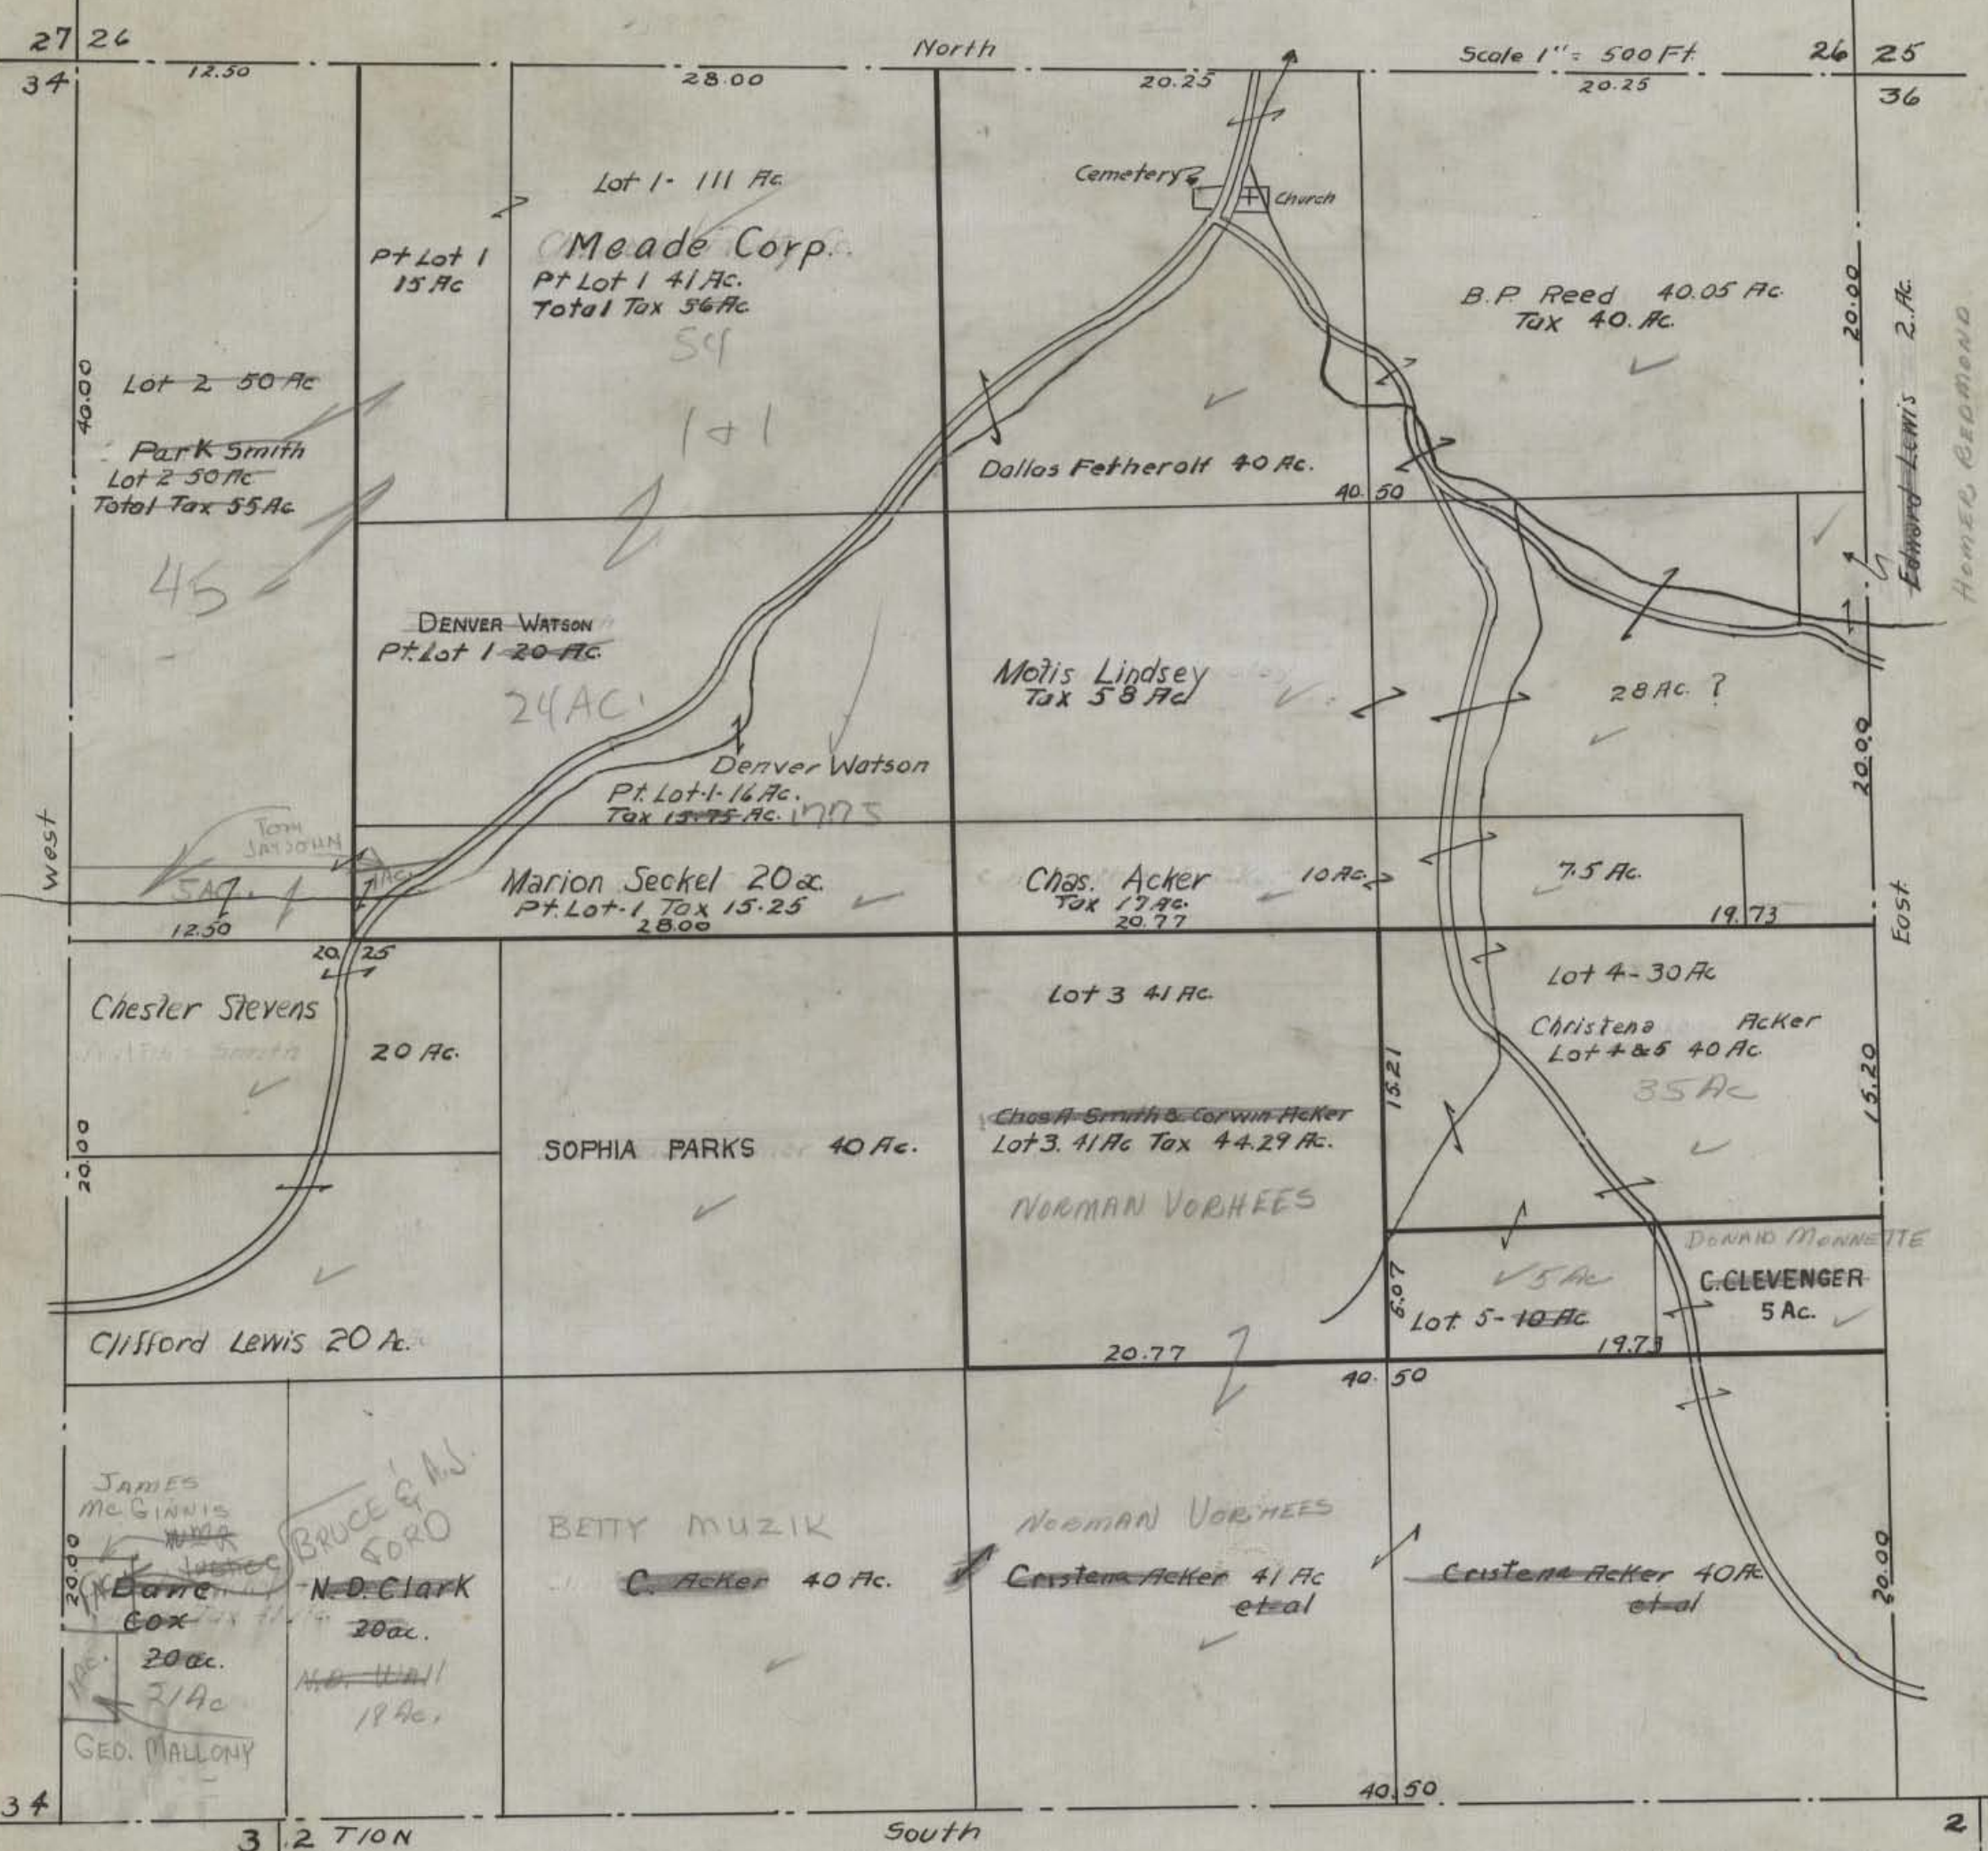 27 26
North
Scale 1" = 500 Ft.
26 25
34
12.50
28.00
20.25
20.25
36
Lot 1 - 111 Ac
Cemetery
Church
Pt Lot 1
15 Ac
Meade Corp.
Pt Lot 1 41 Ac.
Total Tax 56 Ac
54
1+1
B.P. Reed 40.05 Ac.
Tax 40. Ac.
20.00
Edward Lewis 2. Ac.
HOMER REDMOND
40.00
Lot 2 50 Ac
Park Smith
Lot 2 50 Ac
Total Tax 55 Ac
45
Dallas Fetherolf 40 Ac.
40.50
DENVER WATSON
Pt. Lot 1 20 Ac.
24 AC.
Motis Lindsey
Tax 58 Ac
28 Ac. ?
20.00
Denver Watson
Pt. Lot-1-16 Ac.
Tax 15.75 Ac. 1775
West
TOM
5 AC.
1 AC.
12.50
Marion Seckel 20 ac.
Pt. Lot-1 Tax 15.25
28.00
Chas. Acker 10 Ac.
Tax 17 Ac.
20.77
7.5 Ac.
19.73
East
20.25
Chester Stevens
Smith
20 Ac.
Lot 3 41 Ac.
Lot 4-30 Ac
Christena Acker
Lot 4 & 5 40 Ac.
35 Ac
15.21
15.20
20.00
SOPHIA PARKS 40 Ac.
Chas A Smith & Corwin Acker
Lot 3. 41 Ac Tax 44.29 Ac.
NORMAN VORHEES
DONALD MONNETTE
C. CLEVENGER
5 Ac.
5 Ac
Lot 5- 10 Ac
6.07
19.73
Clifford Lewis 20 A.
20.77
40.50
JAMES
MC GINNIS
BRUCE & A.J.
FORD
BETTY MUZIK
NORMAN VORHEES
20.00
Dane
Cox
20 ac.
21 Ac
1 AC.
GEO. MALLONY
N.D. Clark
20 ac.
N.D. Wall
18 Ac.
C. Acker 40 Ac.
Cristena Acker 41 Ac
et al
Cristena Acker 40 A.
et al
20.00
40.50
34
3 2 TION
South
2